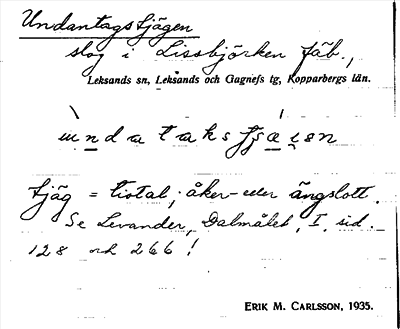 Undantagstjägen
slog i Lissbjörken fäb.,
Leksands sn, Leksands och Gagnefs tg, Kopparbergs län.
tjäg = tiotal, åker- eller ängslott.
Se Levander, Dalmålet, I, sid.
128 och 266!
ERIK M. CARLSSON, 1935.